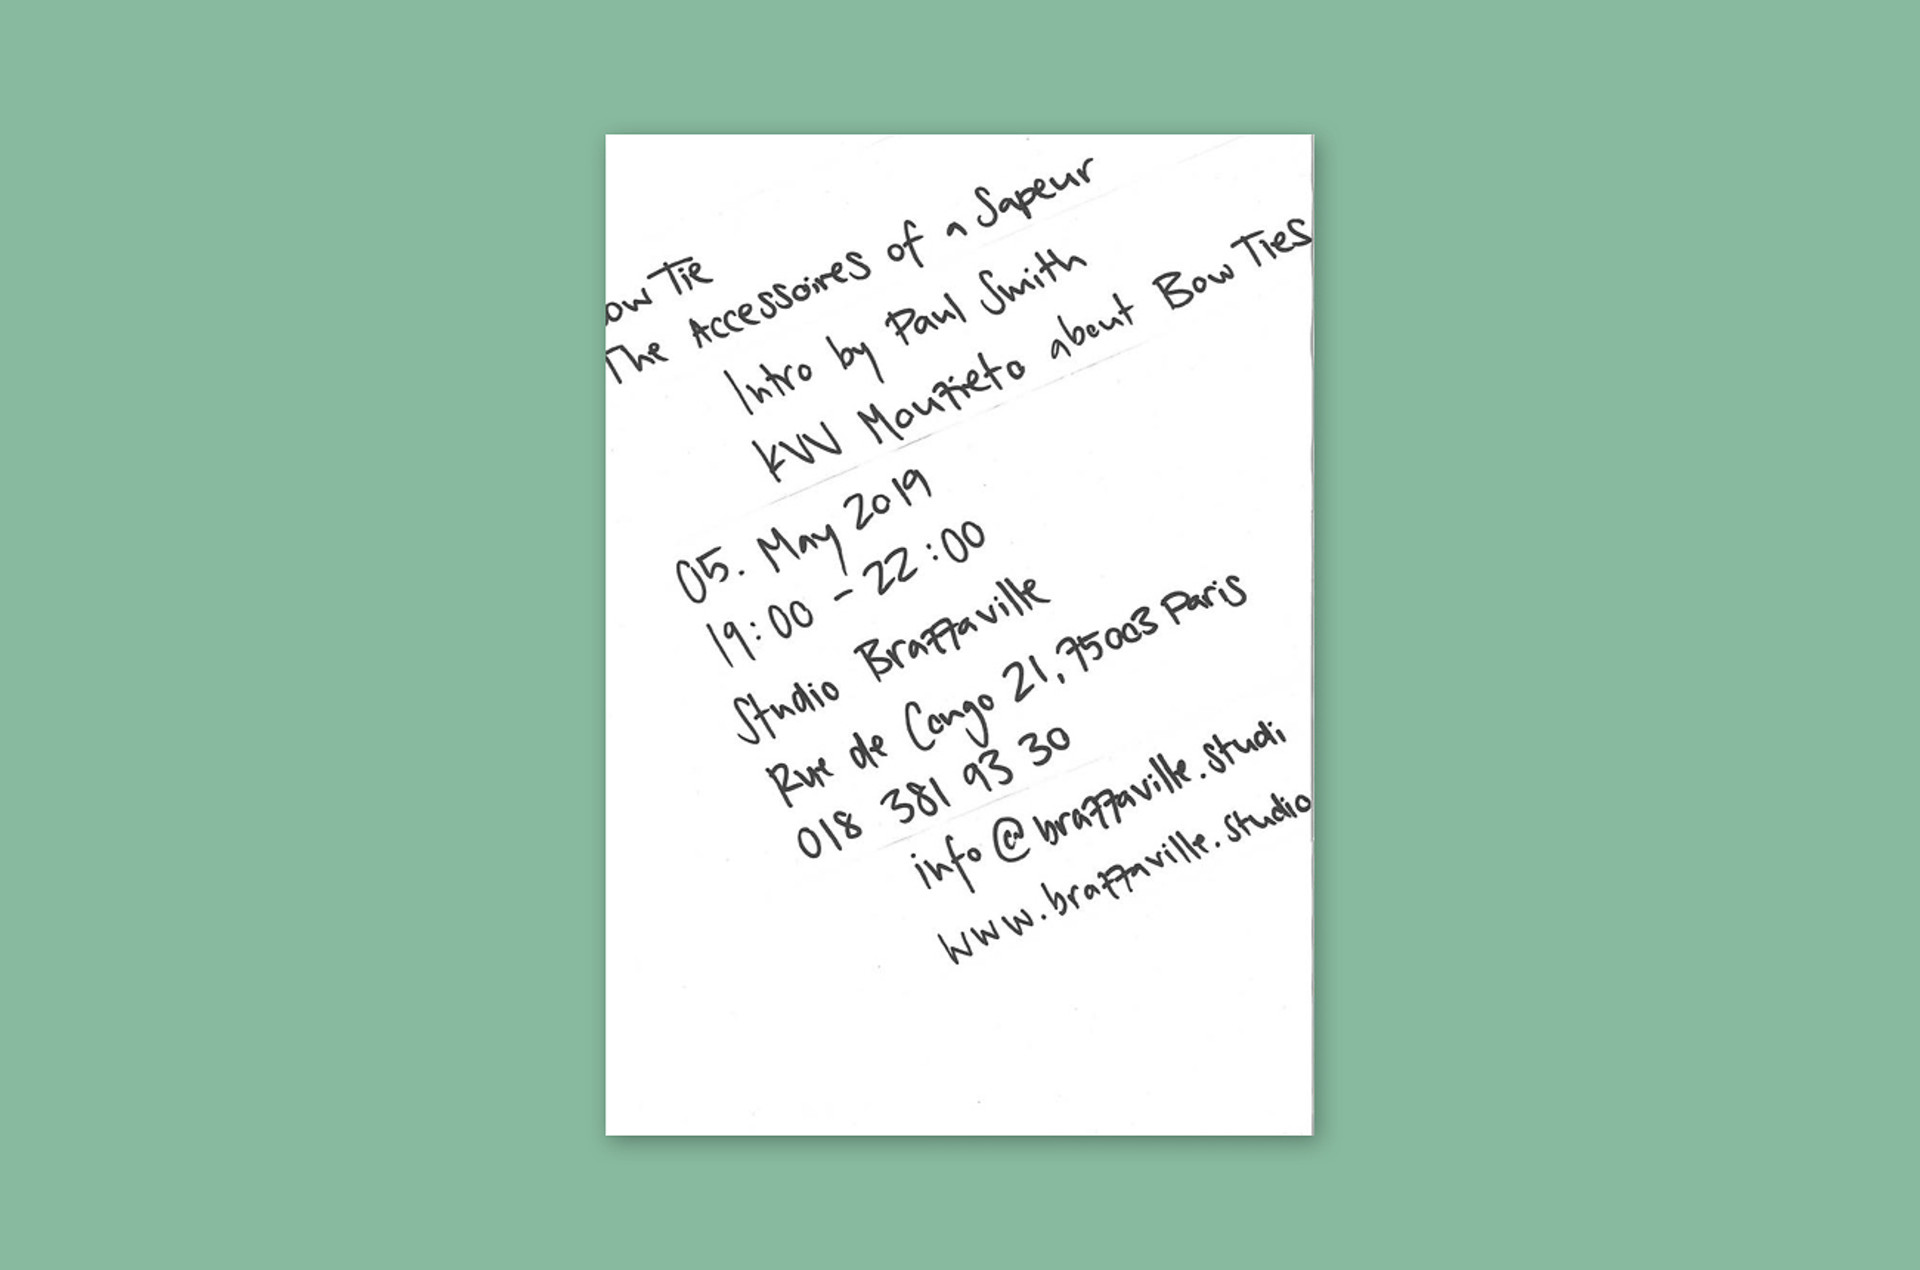 ow Tie
The Accessoires of a Sapeur
Intro by Paul Smith
KVV Mouzieto about Bow Ties
05. May 2019
19:00 - 22:00
Studio Brazzaville
Rue de Congo 21, 75003 Paris
018 381 93 30
info@brazzaville.studi
www.brazzaville.studio